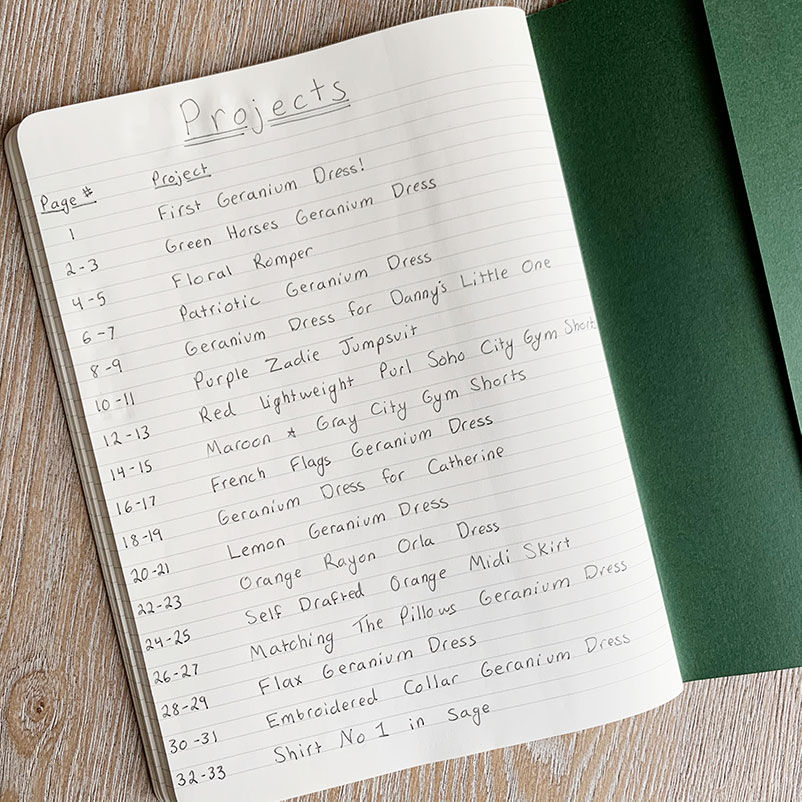 Projects
Page # Project
1 First Geranium Dress!
2-3 Green Horses Geranium Dress
4-5 Floral Romper
6-7 Patriotic Geranium Dress
8-9 Geranium Dress for Danny's Little One
10-11 Purple Zadie Jumpsuit
12-13 Red Lightweight Purl Soho City Gym Shorts
14-15 Maroon & Gray City Gym Shorts
16-17 French Flags Geranium Dress
18-19 Geranium Dress for Catherine
20-21 Lemon Geranium Dress
22-23 Orange Rayon Orla Dress
24-25 Self Drafted Orange Midi Skirt
26-27 Matching The Pillows Geranium Dress
28-29 Flax Geranium Dress
30-31 Embroidered Collar Geranium Dress
32-33 Shirt No 1 in Sage